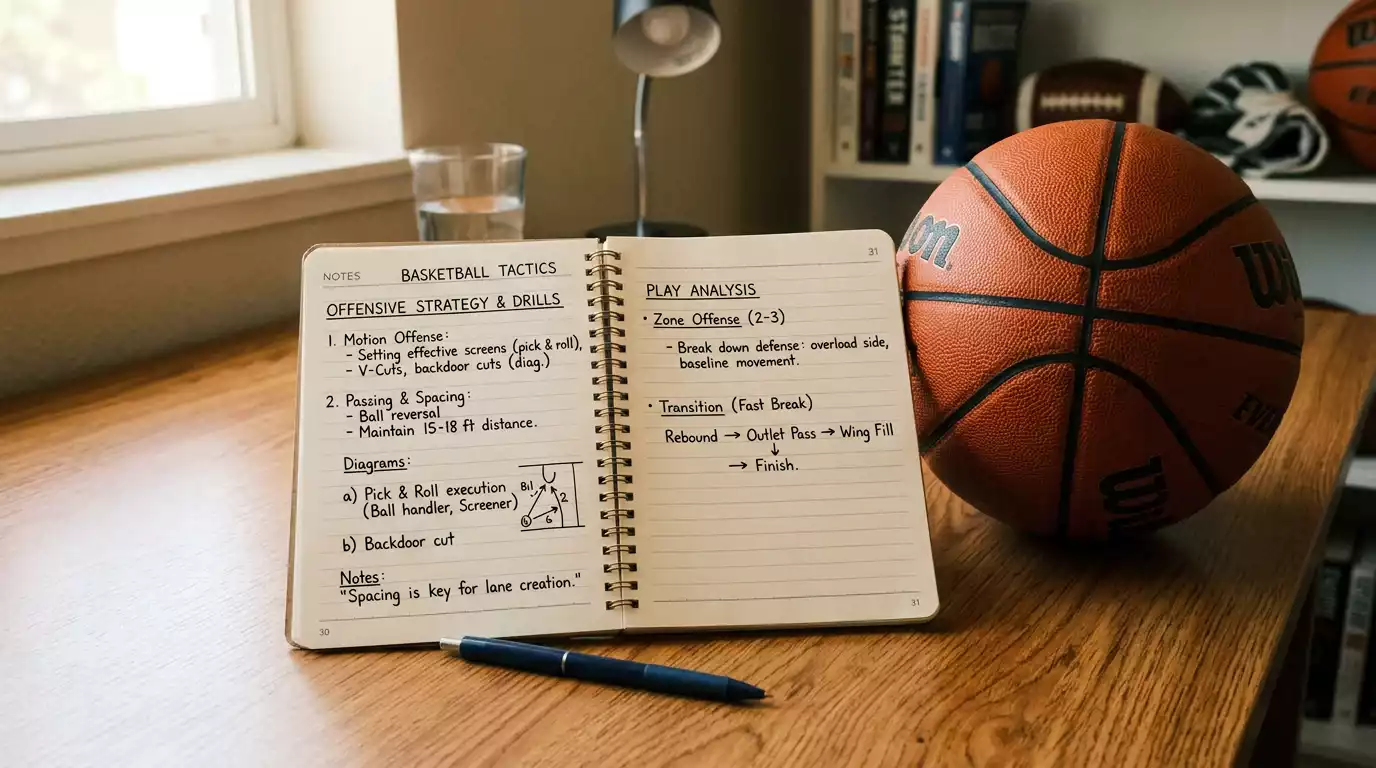 NOTES BASKETBALL TACTICS
OFFENSIVE STRATEGY & DRILLS
1. Motion Offense:
- Setting effective screens (pick & roll),
- V-Cuts, backdoor cuts (diag.)
2. Passing & Spacing:
- Ball reversal
- Maintain 15-18 ft distance.
Diagrams:
a) Pick & Roll execution
(Ball handler, Screener)
2
6
b) Backdoor cut
Notes:
"Spacing is key for lane creation."
30
31
PLAY ANALYSIS
• Zone Offense (2-3)
- Break down defense: overload side,
baseline movement.
• Transition (Fast Break)
Rebound → Outlet Pass → Wing Fill
↓
→ Finish.
31